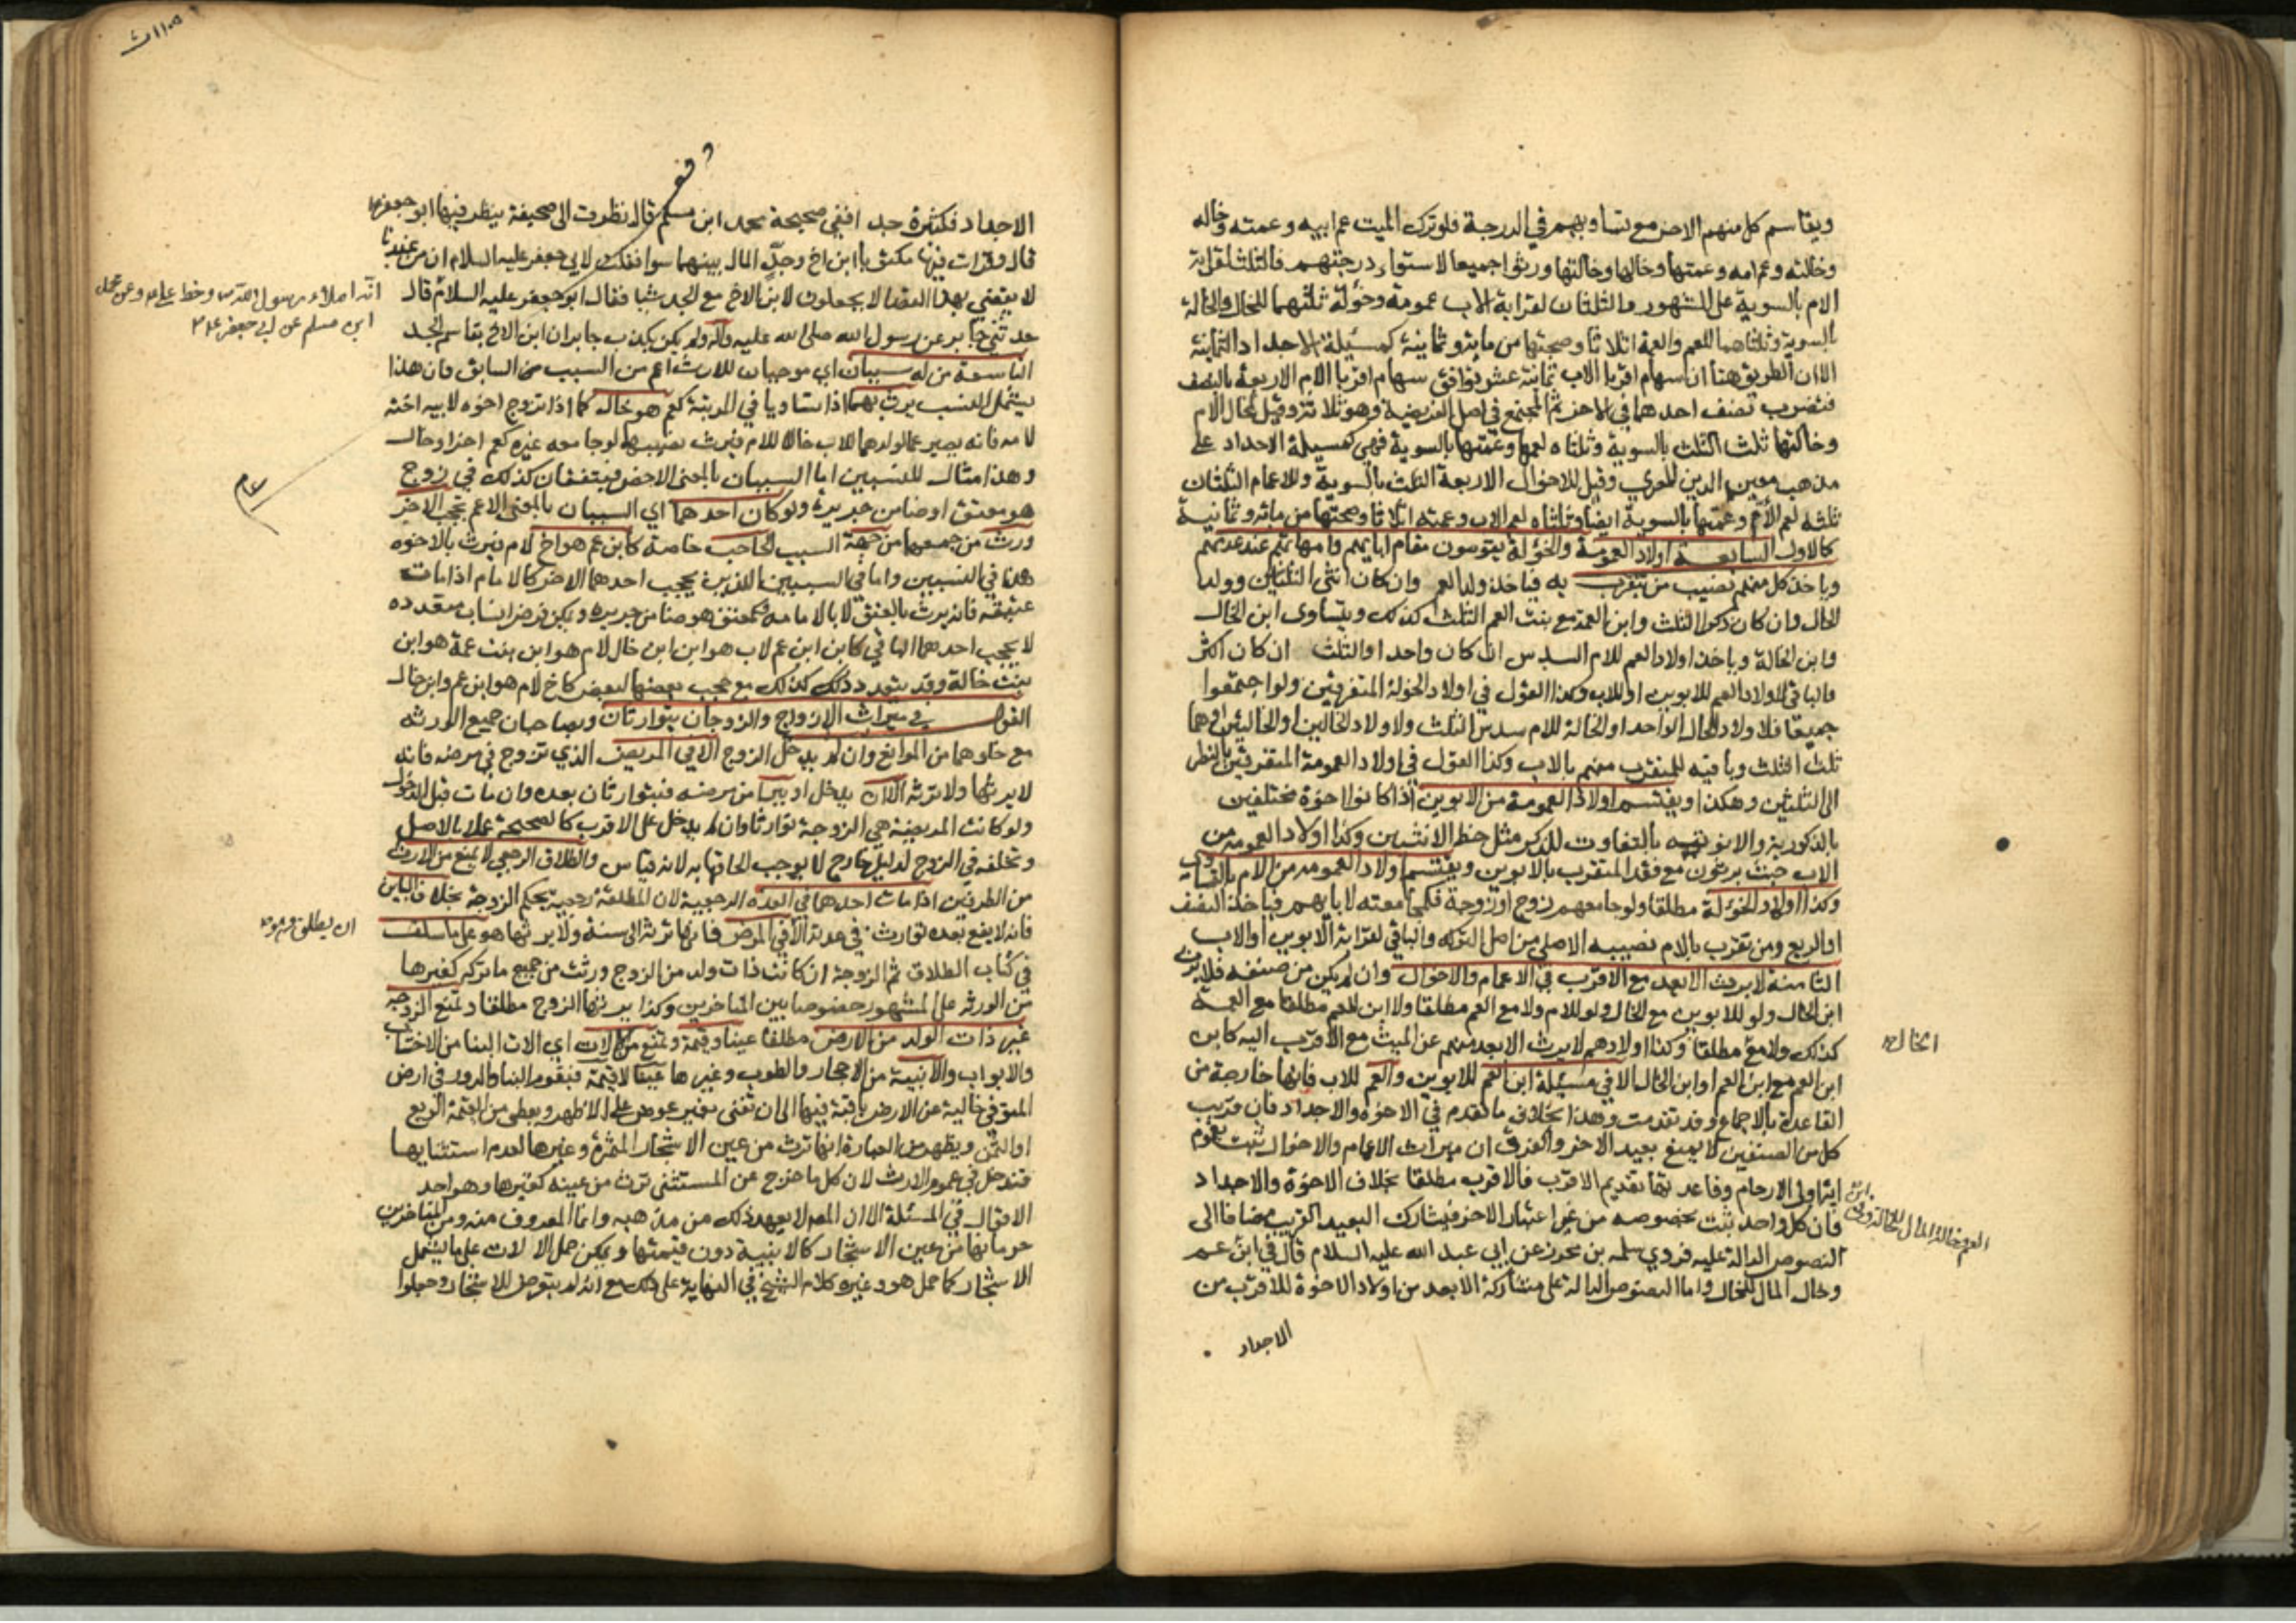 ويقاسم كل منهم الاخر مع تساويهم في الدرجة فلو ترك الميت عم ابيه وعمته وخاله
وخالته وعم امه وعمتها وخالها وخالتها ورثوا جميعا لاستواء درجتهم فالثلث لقرابة
الام بالسوية على المشهور والثلثان لقرابة الاب عمومة وخؤلة ثلثهما للخال والخالة
بالسوية وثلثاهما للعم والعمة اثلاثا وصحتها من مائة وثمانية كمسئلة الاجداد الثمانية
الا ان الطريق هنا ان سهام اقربا الاب ثمانية عشر توافق سهام اقربا الام الاربعة بالنصف
فتضرب نصف احدهما في الاخر ثم المجتمع في اصل الفريضة وهو ثلاثة وقيل لخال الام
وخالتها ثلث الثلث بالسوية وثلثاه لعمها وعمتها بالسوية فهي كمسيلة الاجداد على
مذهب معين الدين المصري وقيل للاخوال الاربعة الثلث بالسوية وللاعمام الثلثان
ثلثه لعم الام وعمتها بالسوية ايضا وثلثاه لعم الاب وعمته اثلاثا وصحتها من مائة وثمانية
كالاول السابعة اولاد العمومة والخؤلة يقومون مقام ابايهم وامهاتهم عند عدمهم
وياخذ كل منهم نصيب من يتقرب به فياخذ ولد العم وان كان انثى الثلثين وولد
الخال وان كان ذكرا الثلث وابن العمة مع بنت العم الثلث كذلك ويتساوى ابن الخال
وابن الخالة وياخذ اولاد العم للام السدس ان كان واحدا والثلث ان كان اكثر
والباقي لاولاد العم للابوين او للاب وكذا القول في اولاد الخؤلة المتفرقين ولو اجتمعوا
جميعا فلاولاد الخال الواحد او الخالة للام سدس الثلث ولاولاد الخالين او الخالتين او هما
ثلث الثلث وباقيه للمتقرب منهم بالاب وكذا القول في اولاد العمومة المتفرقين بالنظر
الى الثلثين وهكذا ويقتسم اولاد العمومة من الابوين اذا كانوا اخوة مختلفين
بالذكورية والانوثية بالتفاوت للذكر مثل حظ الانثيين وكذا اولاد العمومة من
الاب حيث يرثون مع فقد المتقرب بالابوين ويقتسم اولاد العمومة من الام بالتساوي
وكذا اولاد الخؤلة مطلقا ولو جامعهم زوج او زوجة فكمجامعته لابايهم فياخذ النصف
او الربع ومن تقرب بالام نصيبه الاصلي من اصل التركة والباقي لقرابة الابوين او الاب
الثامنة لا يرث الابعد مع الاقرب في الاعمام والاخوال وان لم يكن من صنفه فلا يرث
ابن الخال ولو للابوين مع الخال ولو للام ولا مع العم مطلقا ولا ابن العم مطلقا مع العمة
كذلك ولا مع مطلقا وكذا اولادهم لا يرث الابعد منهم عن الميت مع الاقرب اليه كابن
الخال
ابن العم مع ابن العم او ابن الخال الا في مسئلة ابن العم للابوين والعم للاب فانها خارجة من
القاعدة بالاجماع وقد تقدمت وهذا بخلاف ما تقدم في الاخوة والاجداد فان قريب
كل من الصنفين لا يمنع بعيد الاخر والفرق ان ميراث الاعمام والاخوال ثبت بعموم
اية اولي الارحام وقاعدتها تقديم الاقرب فالاقرب مطلقا بخلاف الاخوة والاجداد
فان كل واحد ثبت بخصوصه من غير اعتبار الاخر فيشارك البعيد القريب مضافا الى
النصوص الدالة عليه فروي سلمه بن محرز عن ابي عبد الله عليه السلام قال في ابن عم
وخال المال للخال واما النصوص الدالة على مشاركة الابعد من اولاد الاخوة للاقرب من
الاجداد
الاجداد فكثيرة جدا ففي صحيحة محمد ابن مسلم قال نظرت الى صحيفة ينظر فيها ابو جعفر
قال وقرات فيها مكتوبا ابن اخ وجد المال بينهما سوا فقلت لابي جعفر عليه السلام ان من عندنا
لا يقضي بهذا القضا لا يجعلون لابن الاخ مع الجد شيا فقال ابو جعفر عليه السلام قال
انه املاء رسول الله وخط علي وعن محمد
ابن مسلم عن ابي جعفر
حدثني جابر عن رسول الله صلى الله عليه واله ولم يكن يكذب جابر ان ابن الاخ يقاسم الجد
التاسعة من له سببان اي موجبان للارث اعم من السبب السابق فان هذا
يشمل النسب يرث بهما اذا تساويا في المرتبة كعم هو خال كما اذا تزوج اخوه لابيه اخته
لامه فانه يصير عما لولدهما للاب خالا للام فيرث نصيبهما لو جامعه غيره كعم اخر او خال
وهذا مثال للنسبين اما السببان بالمعنى الاخص فيتفقان كذلك في زوج
هو معتق او ضامن جريرة ولو كان احدهما اي السببان بالمعنى الاعم يحجب الاخر
ورث من جمعهما من جهة السبب الحاجب خاصة كابن عم هو اخ لام فيرث بالاخوه
هذا في النسبين واما في السببين اللذين يحجب احدهما الاخر كالامام اذا مات
عتيقه فانه يرث بالعتق لا بالامامه وكمعتق هو ضامن جريرة ويمكن فرض انساب متعدده
لا يحجب احدهما الباقي كابن ابن عم لاب هو ابن ابن خال لام هو ابن بنت عمة هو ابن
بنت خالة وقد يتعدد ذلك كذلك مع حجب بعضها لبعض كاخ لام هو ابن عم وابن خال
القول في ميراث الازواج والزوجان يتوارثان ويصاحبان جميع الورثه
مع خلوهما من الموانع وان لم يدخل الزوج الا في المريض الذي تزوج في مرضه فانه
لا يرثها ولا ترثه الا ان يدخل او يبرا من مرضه فيتوارثان بعده وان مات قبل الدخول
ولو كانت المريضة هي الزوجة توارثا وان لم يدخل على الاقرب كالصحيحة عملا بالاصل
وتخلفه في الزوج لدليل خارج لا يوجب الحاقها به لانه قياس والطلاق الرجعي لا يمنع من الارث
من الطرفين اذا مات احدهما في العدة الرجعية لان المطلقة رجعية بحكم الزوجة بخلاف الباين
فانه لا يقع بعده توارث في عدته الا في المرض فانها ترثه الى سنة ولا يرثها هو على ما سلف
في كتاب الطلاق ثم الزوجة ان كانت ذات ولد من الزوج ورثت من جميع ما تركه كغيرها
من الورثه على المشهور خصوصا بين المتاخرين وكذا يرثها الزوج مطلقا وتمنع الزوجة
غير ذات الولد من الارض مطلقا عينا وقيمة وتمنع من الالات اي الات البنا من الاخشاب
والابواب والابنية من الاحجار والطوب وغيرها عينا لا قيمة فيقوم البنا والدور في ارض
المتوفى خالية عن الارض باقية فيها الى ان تفنى بغير عوض على الاظهر ويعطى من القيمة الربع
او الثمن ويظهر من العبارة انها ترث من عين الاشجار المثمرة وغيرها لعدم استثنايها
فتدخل في عموم الارث لان كل ما خرج عن المستثنى ترث من عينه كغيرها وهو احد
الاقوال في المسئلة الا ان المص لا يعهد ذلك من مذهبه وانما المعروف منه ومن المتاخرين
حرمانها من عين الاشجار كالابنية دون قيمتها ويمكن حمل الالات على ما يشمل
الاشجار كما حمل هو وغيره كلام الشيخ في النهاية على ذلك مع انه لم يتعرض للاشجار وجعلوا